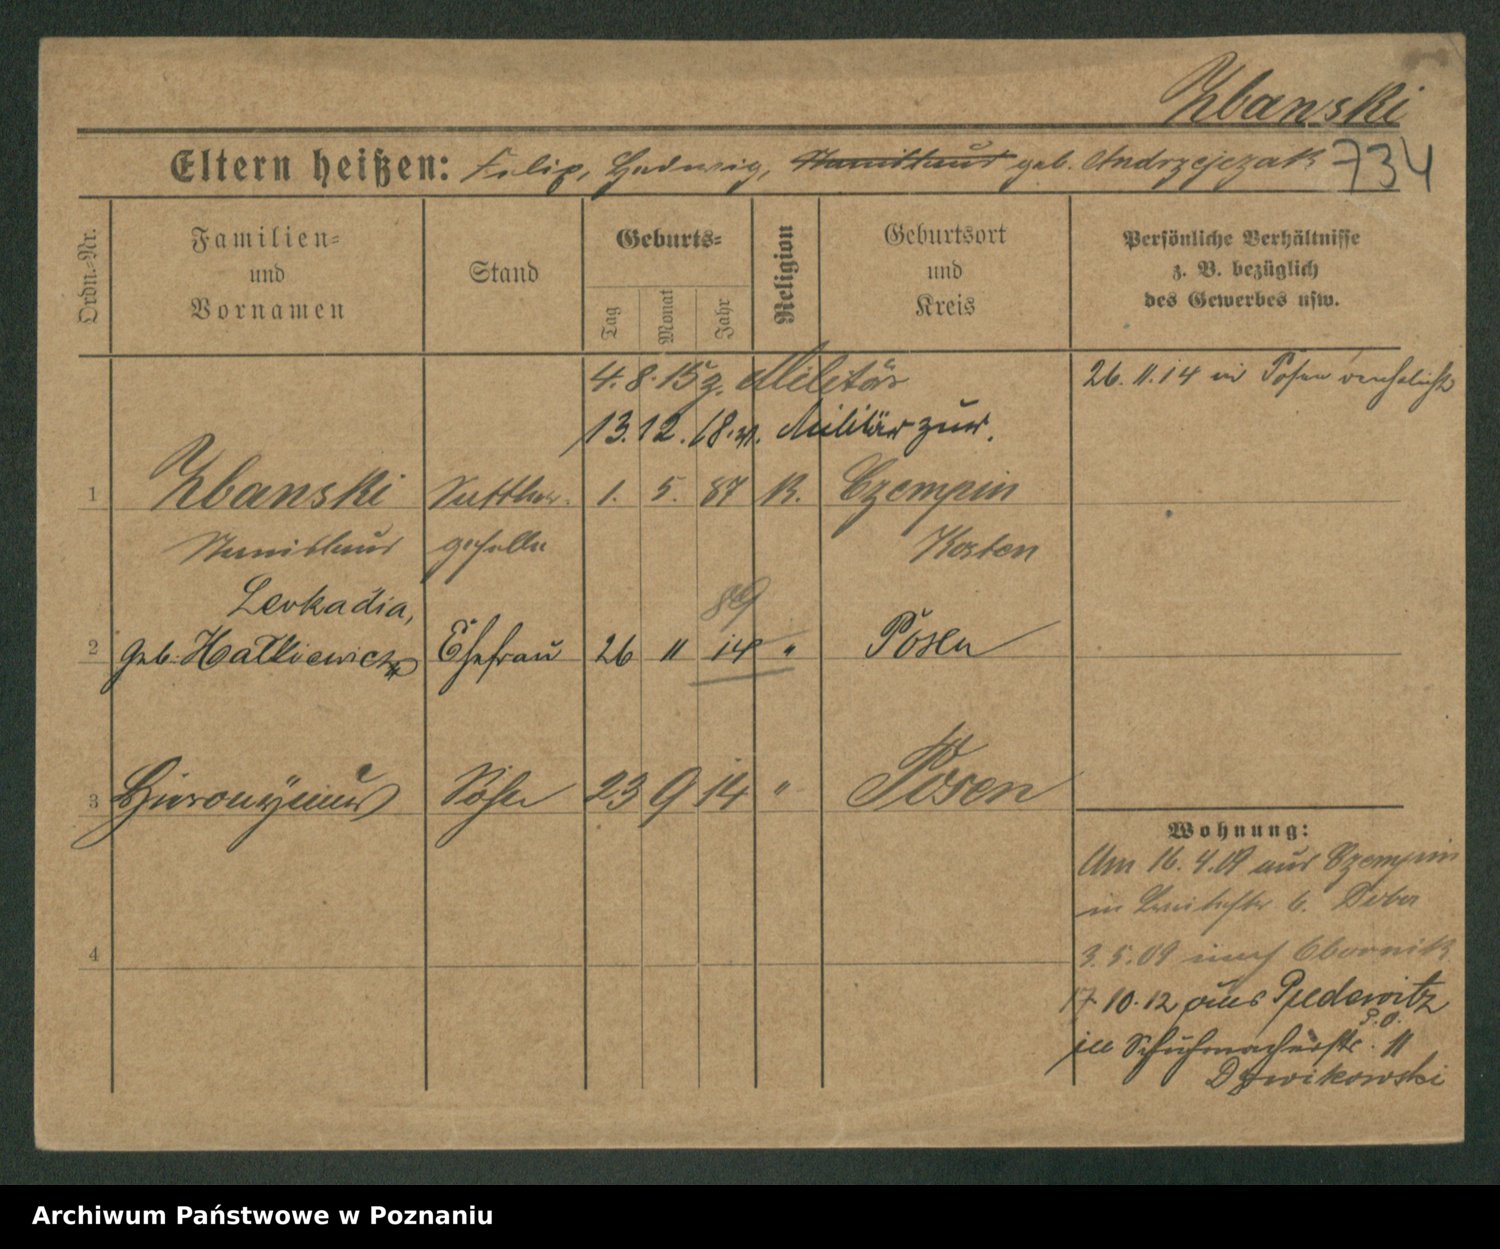 Zbanski
Eltern heißen: Filip, Hedwig, Stanislaus geb. Andrzejczak 734
Ordn.-Nr.
Familien-
und
Vornamen
Stand
Geburts-
Tag
Monat
Jahr
Religion
Geburtsort
und
Kreis
Persönliche Verhältnisse
z. B. bezüglich
des Gewerbes usw.
4. 8. 15 z. Militär
26. 11. 14 in Posen verehelicht
13. 12. 18. v. Militär zur.
1 Zbanski Sattler- 1. 5. 87 K. Czempin
Stanislaus geselle Kosten
Leokadia, 89
2 geb. Ehefrau 26 11 14 " Posen
3 Hieronymus Sohn 23 9 14 " Posen
Wohnung:
Am 16. 4. 09 aus Czempin
in 6.
4
3. 5. 09 nach Obornik
17. 10. 12 aus Pudewitz
in Schuhmacherstr. 11